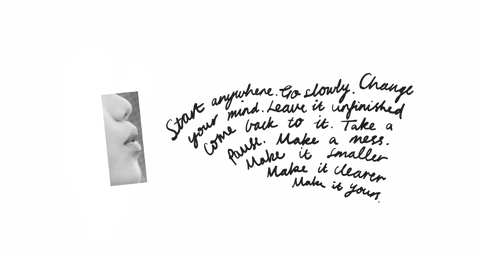 Start anywhere. Go slowly. Change
your mind. Leave it unfinished
come back to it. Take a
pause. Make a mess.
Make it smaller
Make it clearer
Make it yours.